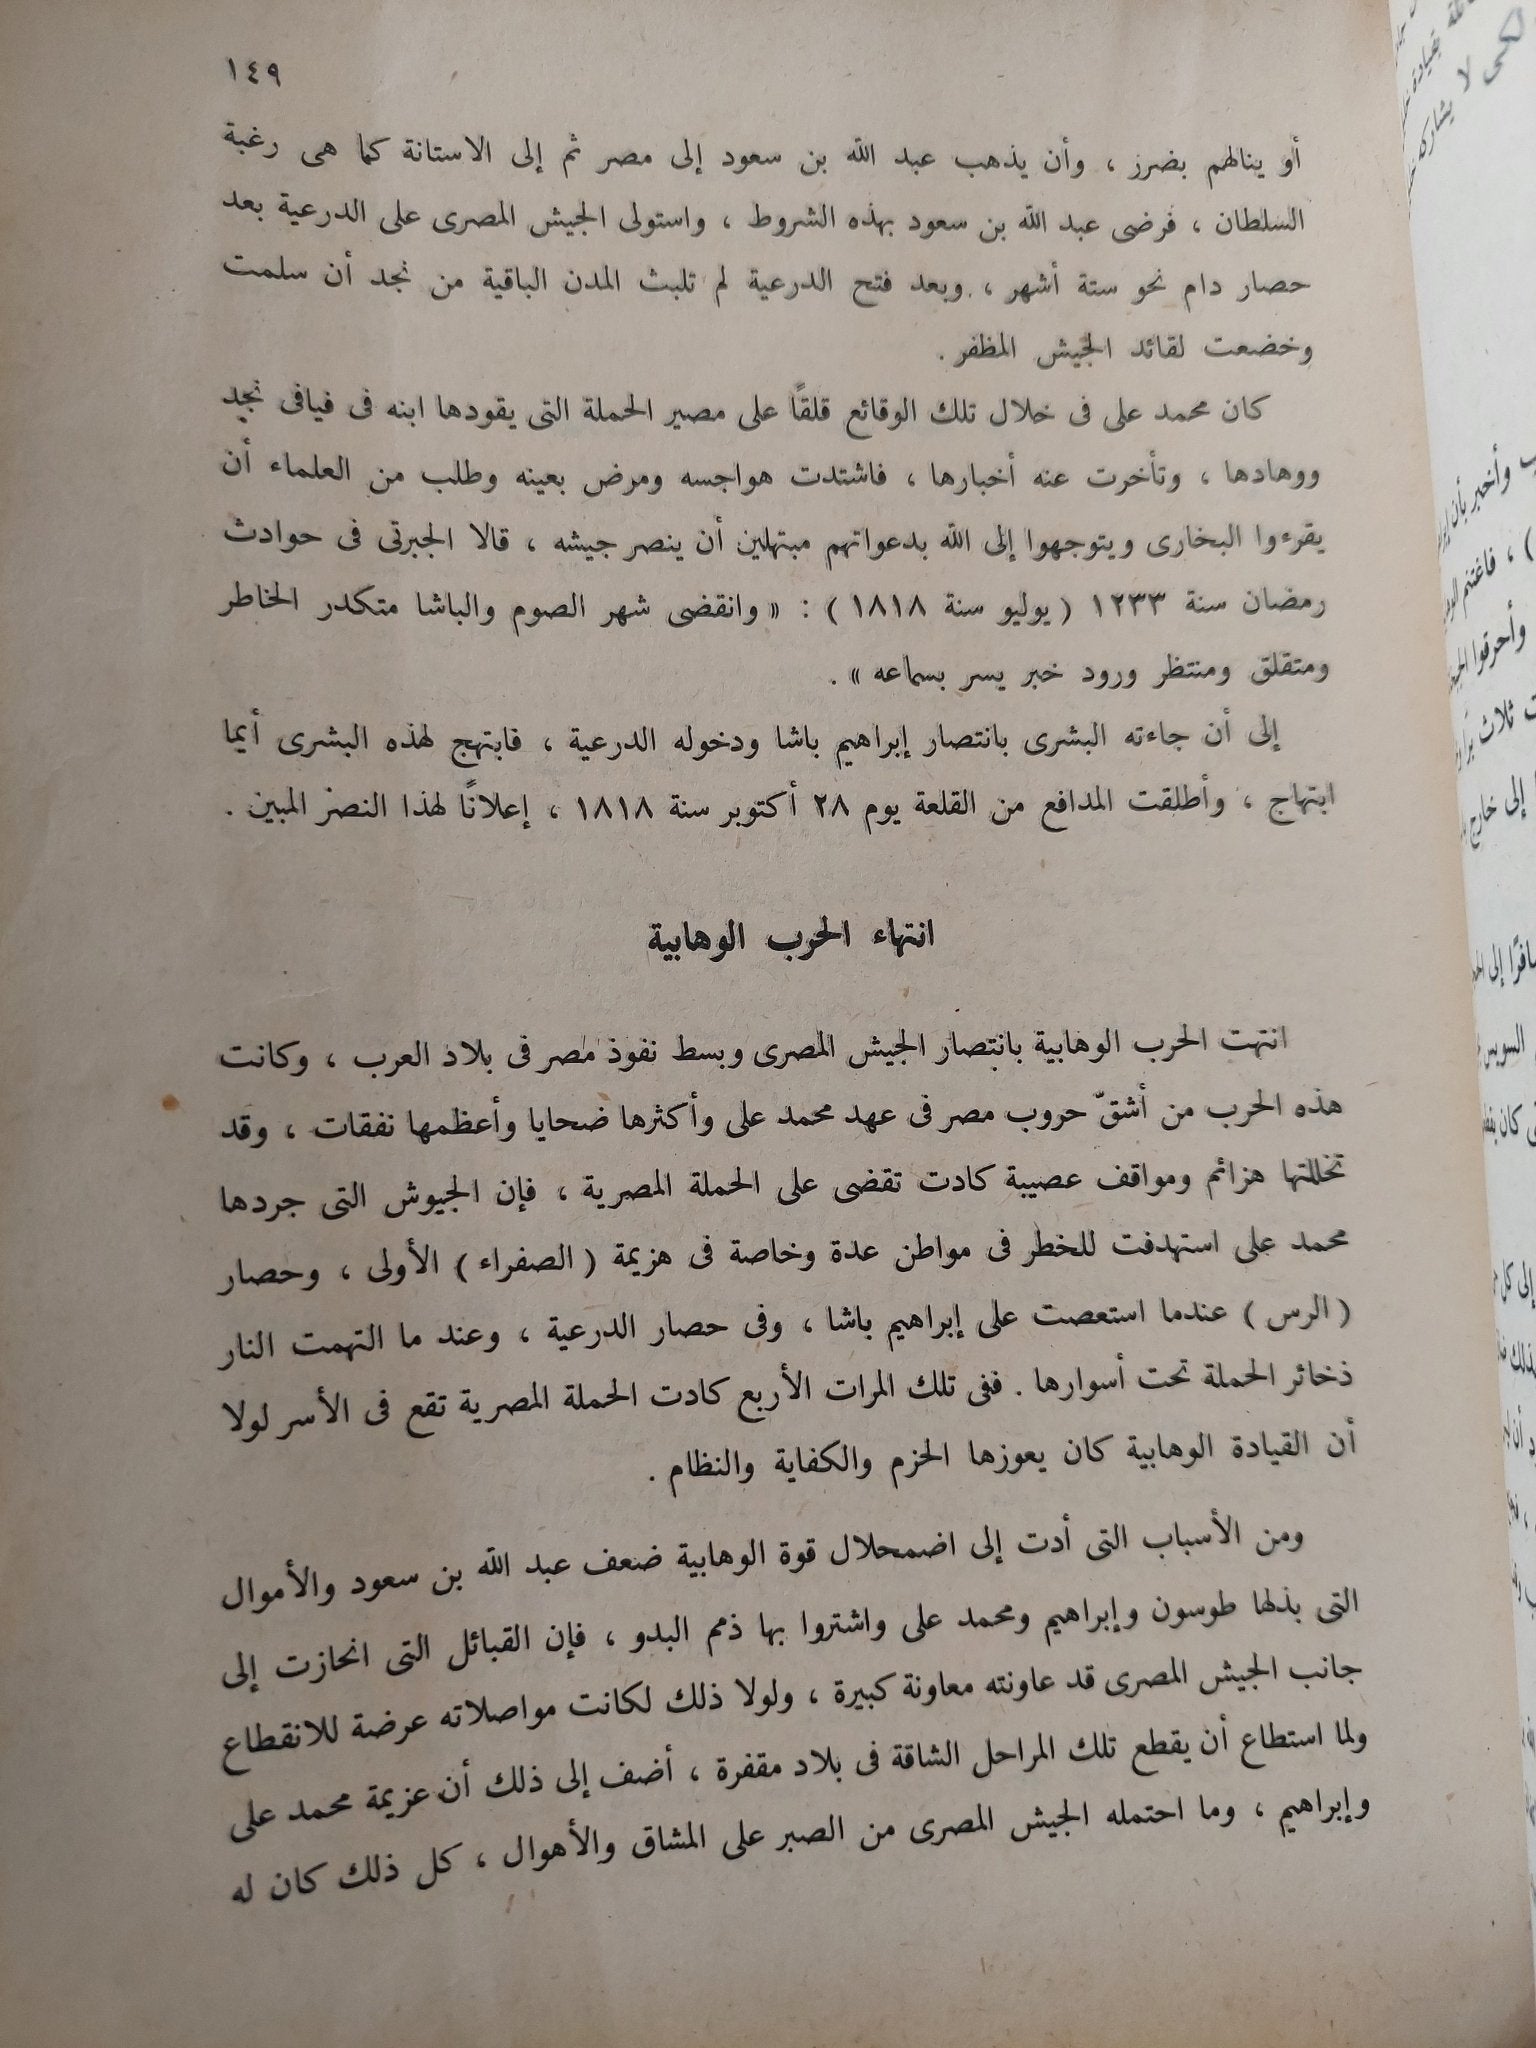 ١٤٩
أو ينالهم بضرز ، وأن يذهب عبد الله بن سعود إلى مصر ثم إلى الاستانة كما هى رغبة
السلطان ، فرضى عبد الله بن سعود بهذه الشروط ، واستولى الجيش المصرى على الدرعية بعد
حصار دام نحو ستة أشهر ، وبعد فتح الدرعية لم تلبث المدن الباقية من نجد أن سلمت
وخضعت لقائد الجيش المظفر .
كان محمد على فى خلال تلك الوقائع قلقًا على مصير الحملة التى يقودها ابنه فى فيافى نجد
ووهادها ، وتأخرت عنه أخبارها ، فاشتدت هواجسه ومرض بعينه وطلب من العلماء أن
يقرءوا البخارى ويتوجهوا إلى الله بدعواتهم مبتهلين أن ينصر جيشه ، قالا الجبرتى فى حوادث
رمضان سنة ١٢٣٣ ( يوليو سنة ١٨١٨ ) : « وانقضى شهر الصوم والباشا متكدر الخاطر
ومتقلق ومنتظر ورود خبر يسر بسماعه » .
إلى أن جاءته البشرى بانتصار إبراهيم باشا ودخوله الدرعية ، فابتهج لهذه البشرى أيما
ابتهاج ، وأطلقت المدافع من القلعة يوم ٢٨ أكتوبر سنة ١٨١٨ ، إعلانًا لهذا النصر المبين .
انتهاء الحرب الوهابية
انتهت الحرب الوهابية بانتصار الجيش المصرى وبسط نفوذ مصر فى بلاد العرب ، وكانت
هذه الحرب من أشقّ حروب مصر فى عهد محمد على وأكثرها ضحايا وأعظمها نفقات ، وقد
تخللتها هزائم ومواقف عصيبة كادت تقضى على الحملة المصرية ، فإن الجيوش التى جردها
محمد على استهدفت للخطر فى مواطن عدة وخاصة فى هزيمة ( الصفراء ) الأولى ، وحصار
( الرس ) عندما استعصت على إبراهيم باشا ، وفى حصار الدرعية ، وعند ما التهمت النار
ذخائر الحملة تحت أسوارها . ففى تلك المرات الأربع كادت الحملة المصرية تقع فى الأسر لولا
أن القيادة الوهابية كان يعوزها الحزم والكفاية والنظام .
ومن الأسباب التى أدت إلى اضمحلال قوة الوهابية ضعف عبد الله بن سعود والأموال
التى بذلها طوسون وإبراهيم ومحمد على واشتروا بها ذمم البدو ، فإن القبائل التى انحازت إلى
جانب الجيش المصرى قد عاونته معاونة كبيرة ، ولولا ذلك لكانت مواصلاته عرضة للانقطاع
ولما استطاع أن يقطع تلك المراحل الشاقة فى بلاد مقفرة ، أضف إلى ذلك أن عزيمة محمد على
وإبراهيم ، وما احتمله الجيش المصرى من الصبر على المشاق والأهوال ، كل ذلك كان له